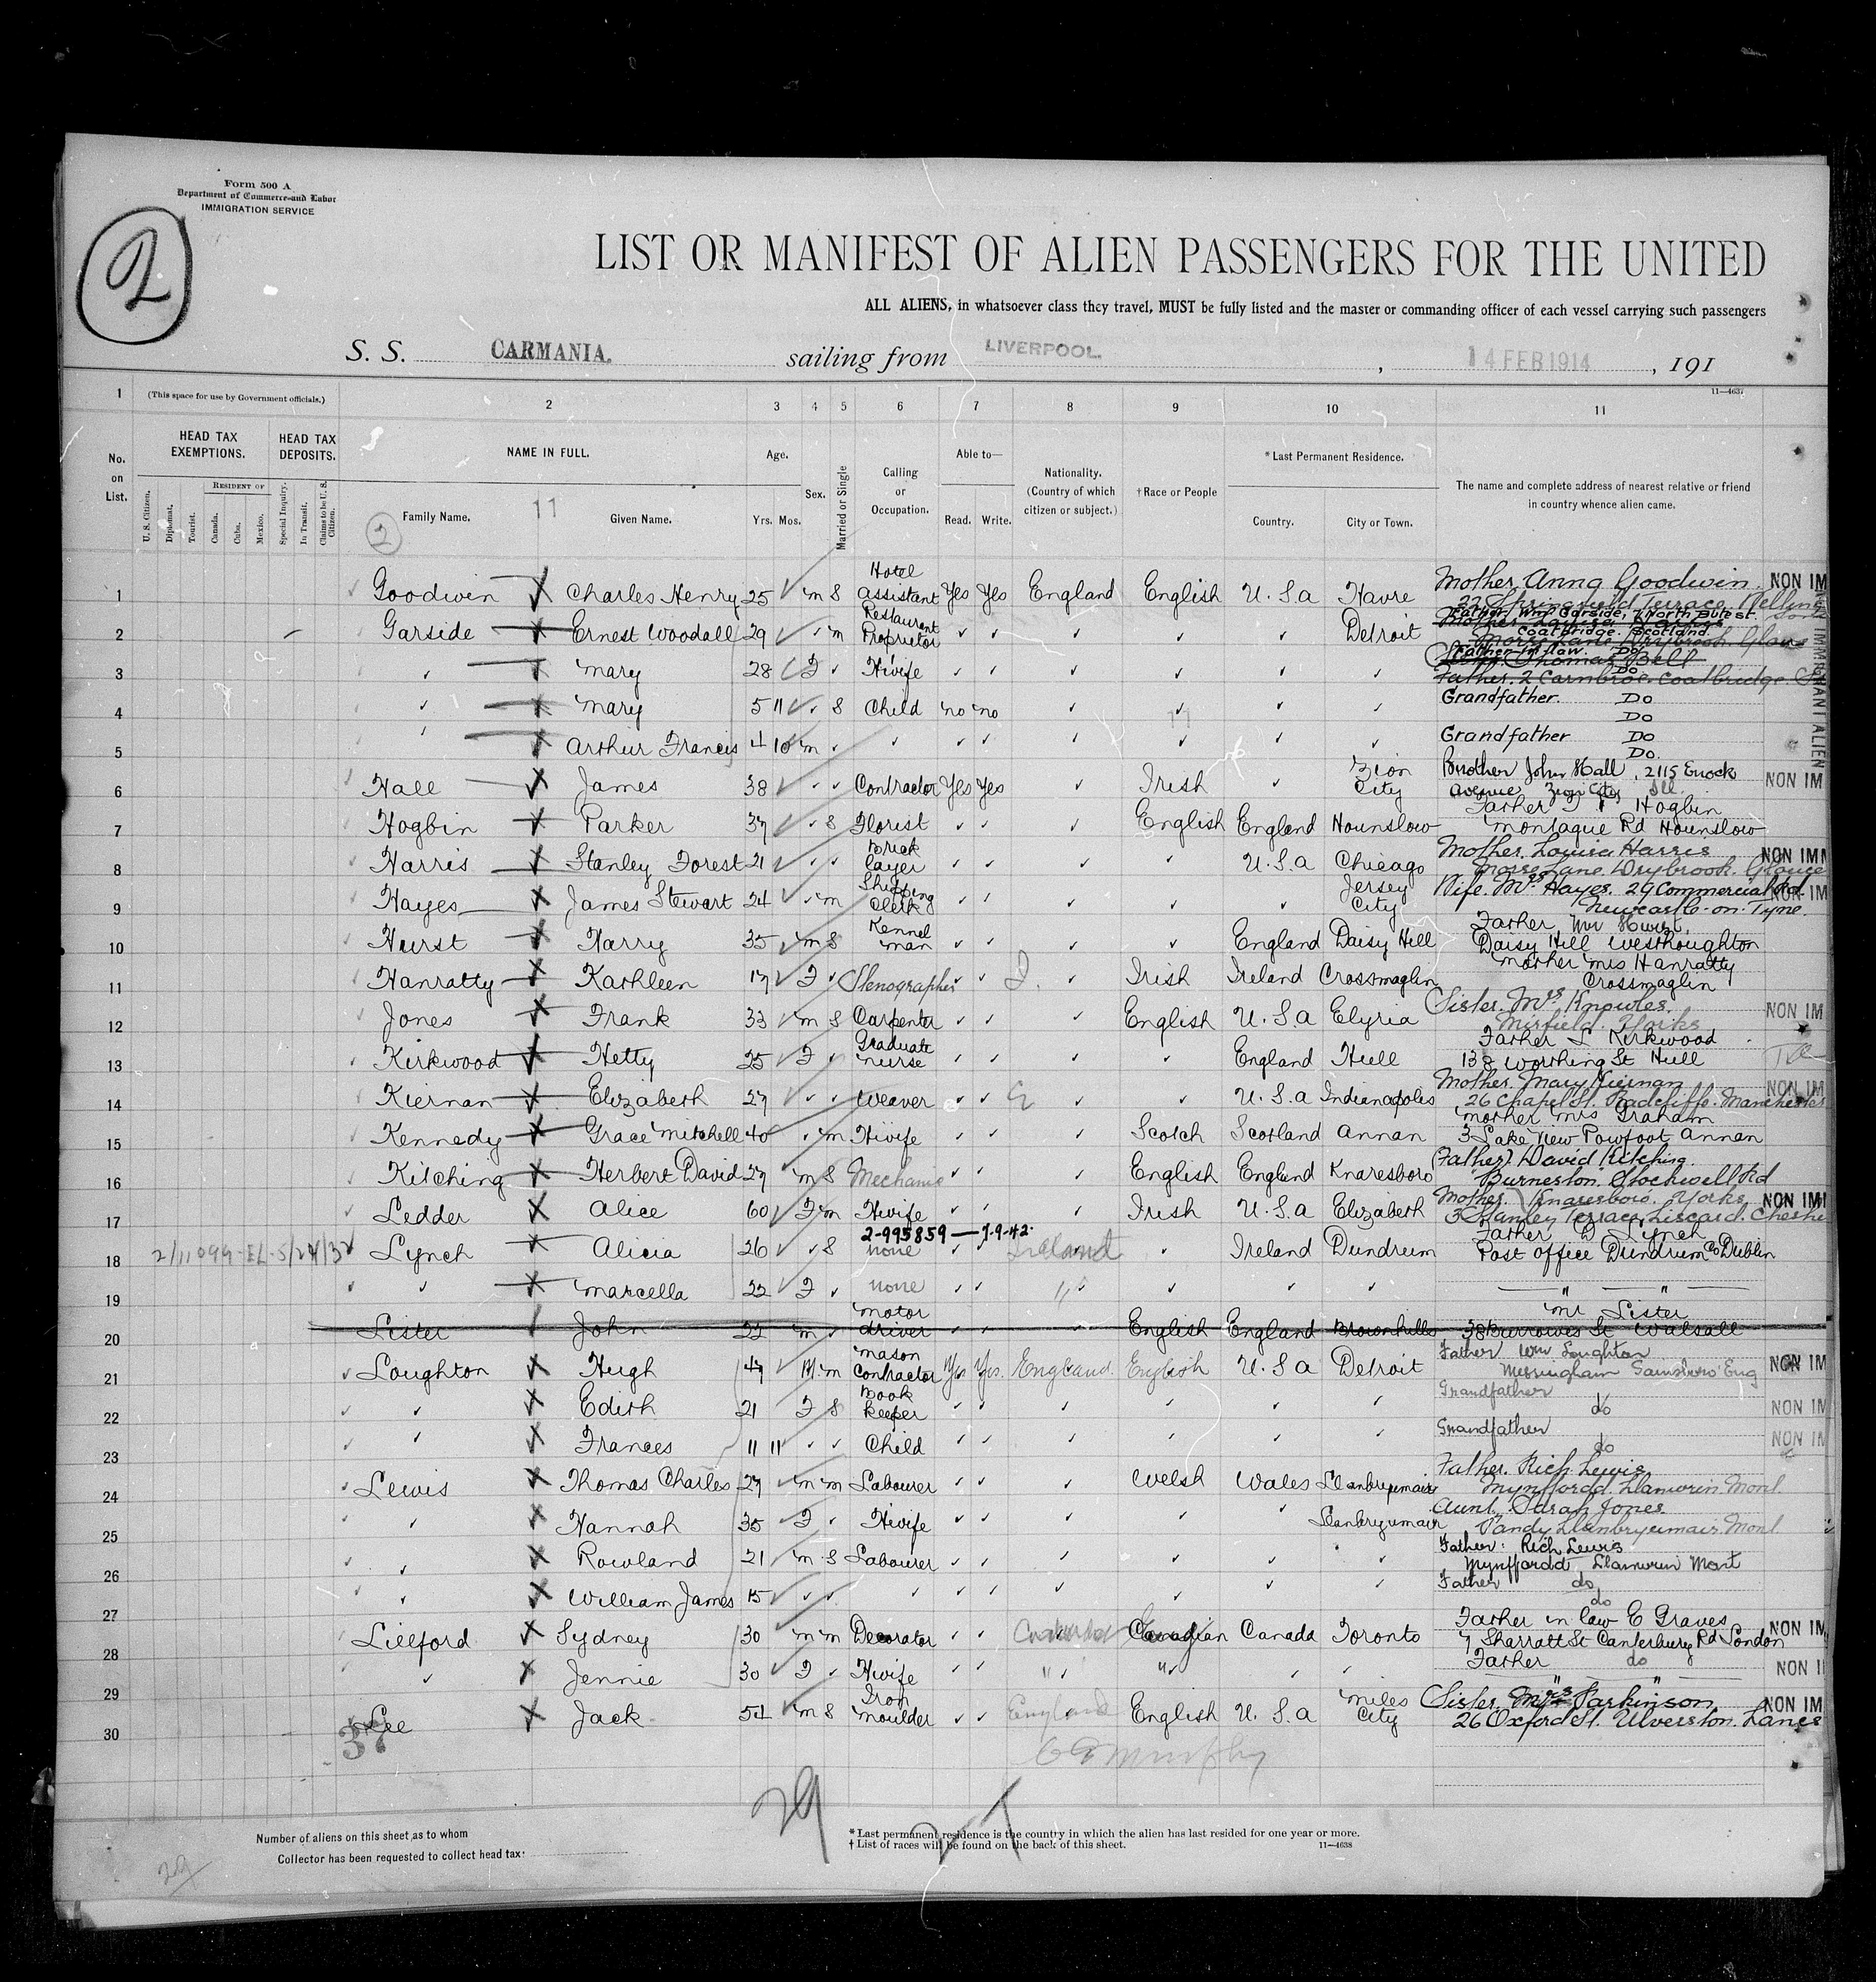 Form 500 A
Department of Commerce and Labor
IMMIGRATION SERVICE
2
LIST OR MANIFEST OF ALIEN PASSENGERS FOR THE UNITED
ALL ALIENS, in whatsoever class they travel, MUST be fully listed and the master or commanding officer of each vessel carrying such passengers
S. S. CARMANIA. sailing from LIVERPOOL. , 14 FEB 1914 , 191
11—4637
1 (This space for use by Government officials.) 2 3 4 5 6 7 8 9 10 11
No. on List. HEAD TAX EXEMPTIONS. HEAD TAX DEPOSITS. NAME IN FULL. Age. Sex. Married or Single Calling or Occupation. Able to— Nationality. (Country of which citizen or subject.) †Race or People *Last Permanent Residence. The name and complete address of nearest relative or friend in country whence alien came.
U. S. Citizen. Diplomat. Tourist. RESIDENT OF Canada. Cuba. Mexico. Special Inquiry. In Transit. Claims to be U. S. Citizen. 2 Family Name. 11 Given Name. Yrs. Mos. Read. Write. Country. City or Town.
1 Goodwin X Charles Henry 25 m S Hotel assistant Yes Yes England English U.S.a Havre Mother Anna Goodwin NON IM
2 Garside X Ernest Woodall 29 ✓ m Restaurant Proprietor ✓ ✓ ✓ ✓ ✓ Detroit Father, Wm Garside, 7 North Bute st. Coatbridge. Scotland.
3 ✓ X Mary 28 F ✓ H'wife ✓ ✓ ✓ ✓ ✓ ✓ Father in law. Do Do
4 ✓ X Mary 5 11 ✓ S Child no no ✓ ✓ ✓ ✓ Grandfather. Do Do
5 ✓ X Arthur Francis 4 10 m ✓ ✓ ✓ ✓ ✓ ✓ ✓ ✓ Grandfather Do Do.
6 Hall X James 38 ✓ ✓ Contractor Yes Yes ✓ Irish ✓ Zion City Brother John Hall, 2115 Enock Avenue Zion City Ill. NON IM
7 Hogbin X Parker 37 ✓ S Florist ✓ ✓ ✓ English England Hounslow Father Hogbin Montague Rd Hounslow
8 Harris X Stanley Forest 21 ✓ ✓ Brick layer ✓ ✓ ✓ ✓ U.S.a Chicago Mother. Louisa Harris Morse Lane. Drybrook. Glouce NON IMM
9 Hayes X James Stewart 24 ✓ m Shipping Clerk ✓ ✓ ✓ ✓ ✓ Jersey City Wife. Mrs Hayes. 29 Commercial Rd. Newcastle-on-Tyne. NON IM
10 Hurst X Harry 35 m S Kennel man ✓ ✓ ✓ ✓ England Daisy Hill Father, Mr Hurst, Daisy Hill Westhoughton
11 Hanratty X Kathleen 17 F ✓ Stenographer ✓ ✓ ✓ Irish Ireland Crossmaglin Mother Mrs Hanratty Crossmaglin
12 Jones X Frank 33 m S Carpenter ✓ ✓ ✓ English U.S.a Elyria Sister. Mrs Knowles. Mirfield. Yorks NON IM
13 Kirkwood X Hetty 25 F ✓ Graduate nurse ✓ ✓ ✓ ✓ England Hull Father Kirkwood 138 Worthing St Hull
14 Kiernan X Elizabeth 27 ✓ ✓ Weaver ✓ ✓ ✓ ✓ U.S.a Indianapolis Mother. Mary Kiernan 26 Chapel St. Radcliffe. Manchester NON IM
15 Kennedy X Grace Mitchell 40 ✓ m H'wife ✓ ✓ ✓ Scotch Scotland Annan Mother Mrs Graham 3 Lake View Powfoot Annan
16 Kitching X Herbert David 27 m S Mechanic ✓ ✓ English England Knaresboro (Father) David Kitching. Burneston. Stockwell Rd Knaresboro. Yorks
17 Ledder X Alice 60 F m H'wife ✓ ✓ Irish U.S.a Elizabeth Mother. 3 Stanley Terrace. Liscard. Cheshi NON IMM
2-995859 — 7-9-42.
18 2/11099-EL-5/24/32 Lynch X Alicia 26 ✓ S none ✓ ✓ Ireland ✓ Ireland Dundrum Father D Lynch Post Office Dundrum Co Dublin
19 ✓ ✓ X Marcella 22 F ✓ none ✓ ✓ " ✓ ✓ ✓ " "
20 Lister John 22 m ✓ motor driver ✓ ✓ ✓ English England Brownhills Mr Lister 38 Burrowes St Walsall
21 Loughton X Hugh 47 M m mason Contractor Yes Yes. England. English U.S.a Detroit Father Wm Loughton Messingham Gainsboro Eng NON IM
22 ✓ ✓ X Edith 21 F S Book keeper ✓ ✓ ✓ ✓ ✓ ✓ Grandfather do NON IM
23 ✓ ✓ X Frances 11 11 ✓ ✓ Child ✓ ✓ ✓ ✓ ✓ ✓ Grandfather do NON IM
24 Lewis X Thomas Charles 27 m m Labourer ✓ ✓ ✓ Welsh Wales Llanbrynmair Father. Rich Lewis Mynffordd. Llanwrin. Mont.
25 ✓ X Hannah 35 F ✓ H'wife ✓ ✓ ✓ ✓ ✓ Llanbrynmair Aunt. Sarah Jones. Pandy Llanbrynmair. Mont
26 ✓ ✓ X Rowland 21 m S Labourer ✓ ✓ ✓ ✓ ✓ ✓ Father: Rich Lewis Mynffordd Llanwrin Mont
27 ✓ ✓ X William James 15 ✓ ✓ ✓ ✓ ✓ ✓ ✓ ✓ ✓ Father do, do
28 Lilford X Sydney 30 m m Decorator ✓ ✓ Canadian Canada Toronto Father in law E Graves 7 Sharratt St Canterbury Rd London NON IM
29 ✓ X Jennie 30 F ✓ H'wife ✓ ✓ " " ✓ ✓ Father do NON I
30 Lee X Jack 54 m S Iron moulder ✓ ✓ England English U.S.a Miles City Sister. Mrs Parkinson 26 Oxford St. Ulverston. Lancs NON IM
37
29
Number of aliens on this sheet as to whom
Collector has been requested to collect head tax:
29
*Last permanent residence is the country in which the alien has last resided for one year or more.
†List of races will be found on the back of this sheet. 11—4638